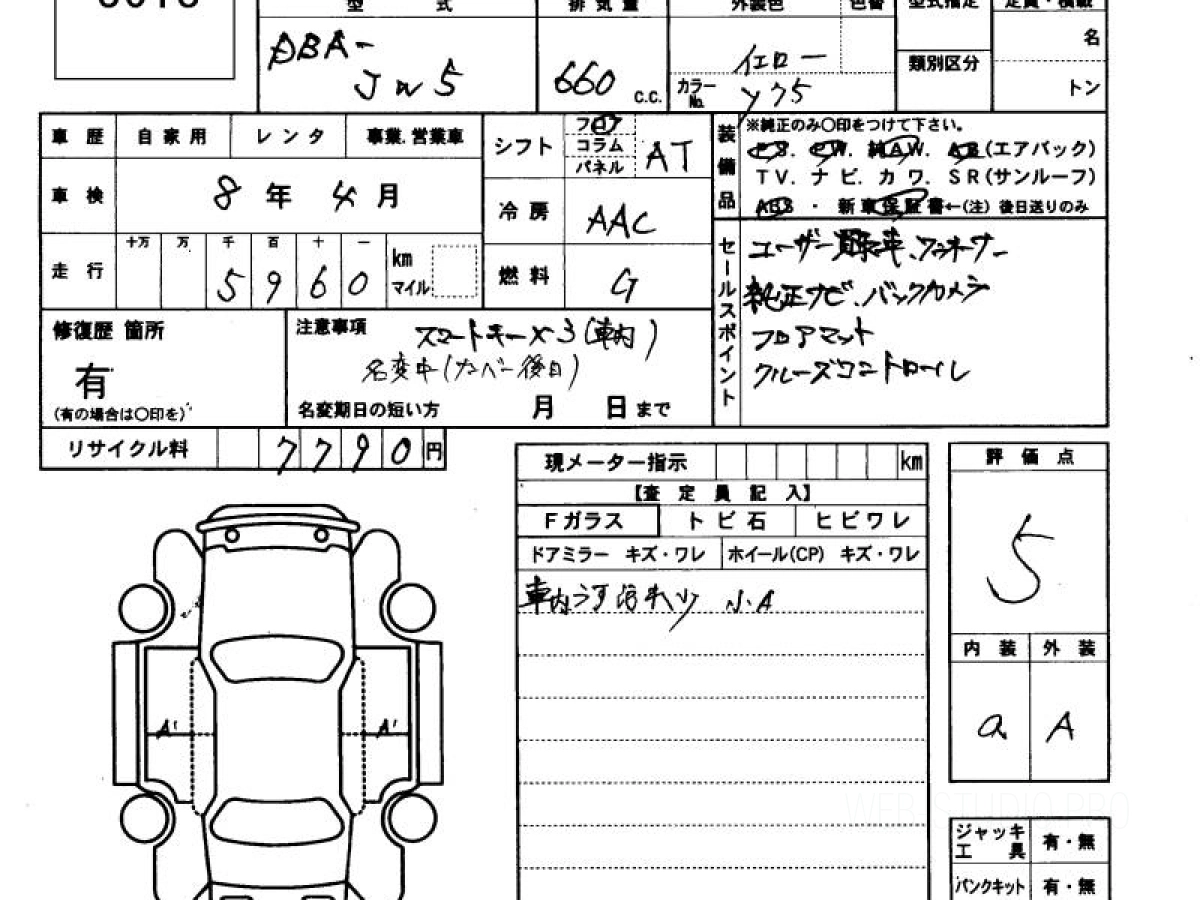 型 式
排 気 量
外装色
色番
型式指定
定員・積載
DBA-
JW5
660 c.c.
イエロー
カラーNo. Y75
類別区分
名
トン
車 歴 自 家 用 レ ン タ 事業.営業車
シフト フロア
コラム
パネル
AT
車 検 8 年 4 月
冷 房 AAC
走 行
十万 万 千 百 十 一
5 9 6 0
km
マイル
燃 料 G
装備品
※純正のみ〇印をつけて下さい。
PS. PW. 純AW. AB(エアバック)
TV. ナ ビ. カ ワ. SR(サンルーフ)
ABS ・ 新 車 保 証 書←(注) 後日送りのみ
セールスポイント
ユーザー買取車、ワンオーナー
純正ナビ、バックカメラ
フロアマット
クルーズコントロール
修復歴 箇所
有
(有の場合は〇印を)
注意事項 スマートキー×3(車内)
名変中(ナンバー後日)
名変期日の短い方 月 日 まで
リサイクル料 7 7 9 0 円
現メーター指示 km
【査 定 員 記 入】
Fガラス ト ビ 石 ヒ ビ ワ レ
ドアミラー キズ・ワレ ホイール(CP) キズ・ワレ
車内うす汚れ 小A
評 価 点
5
内 装 外 装
a A
A' A'
ジャッキ
工 具
有・無
パンクキット 有・無
WEB STUDIO PRO